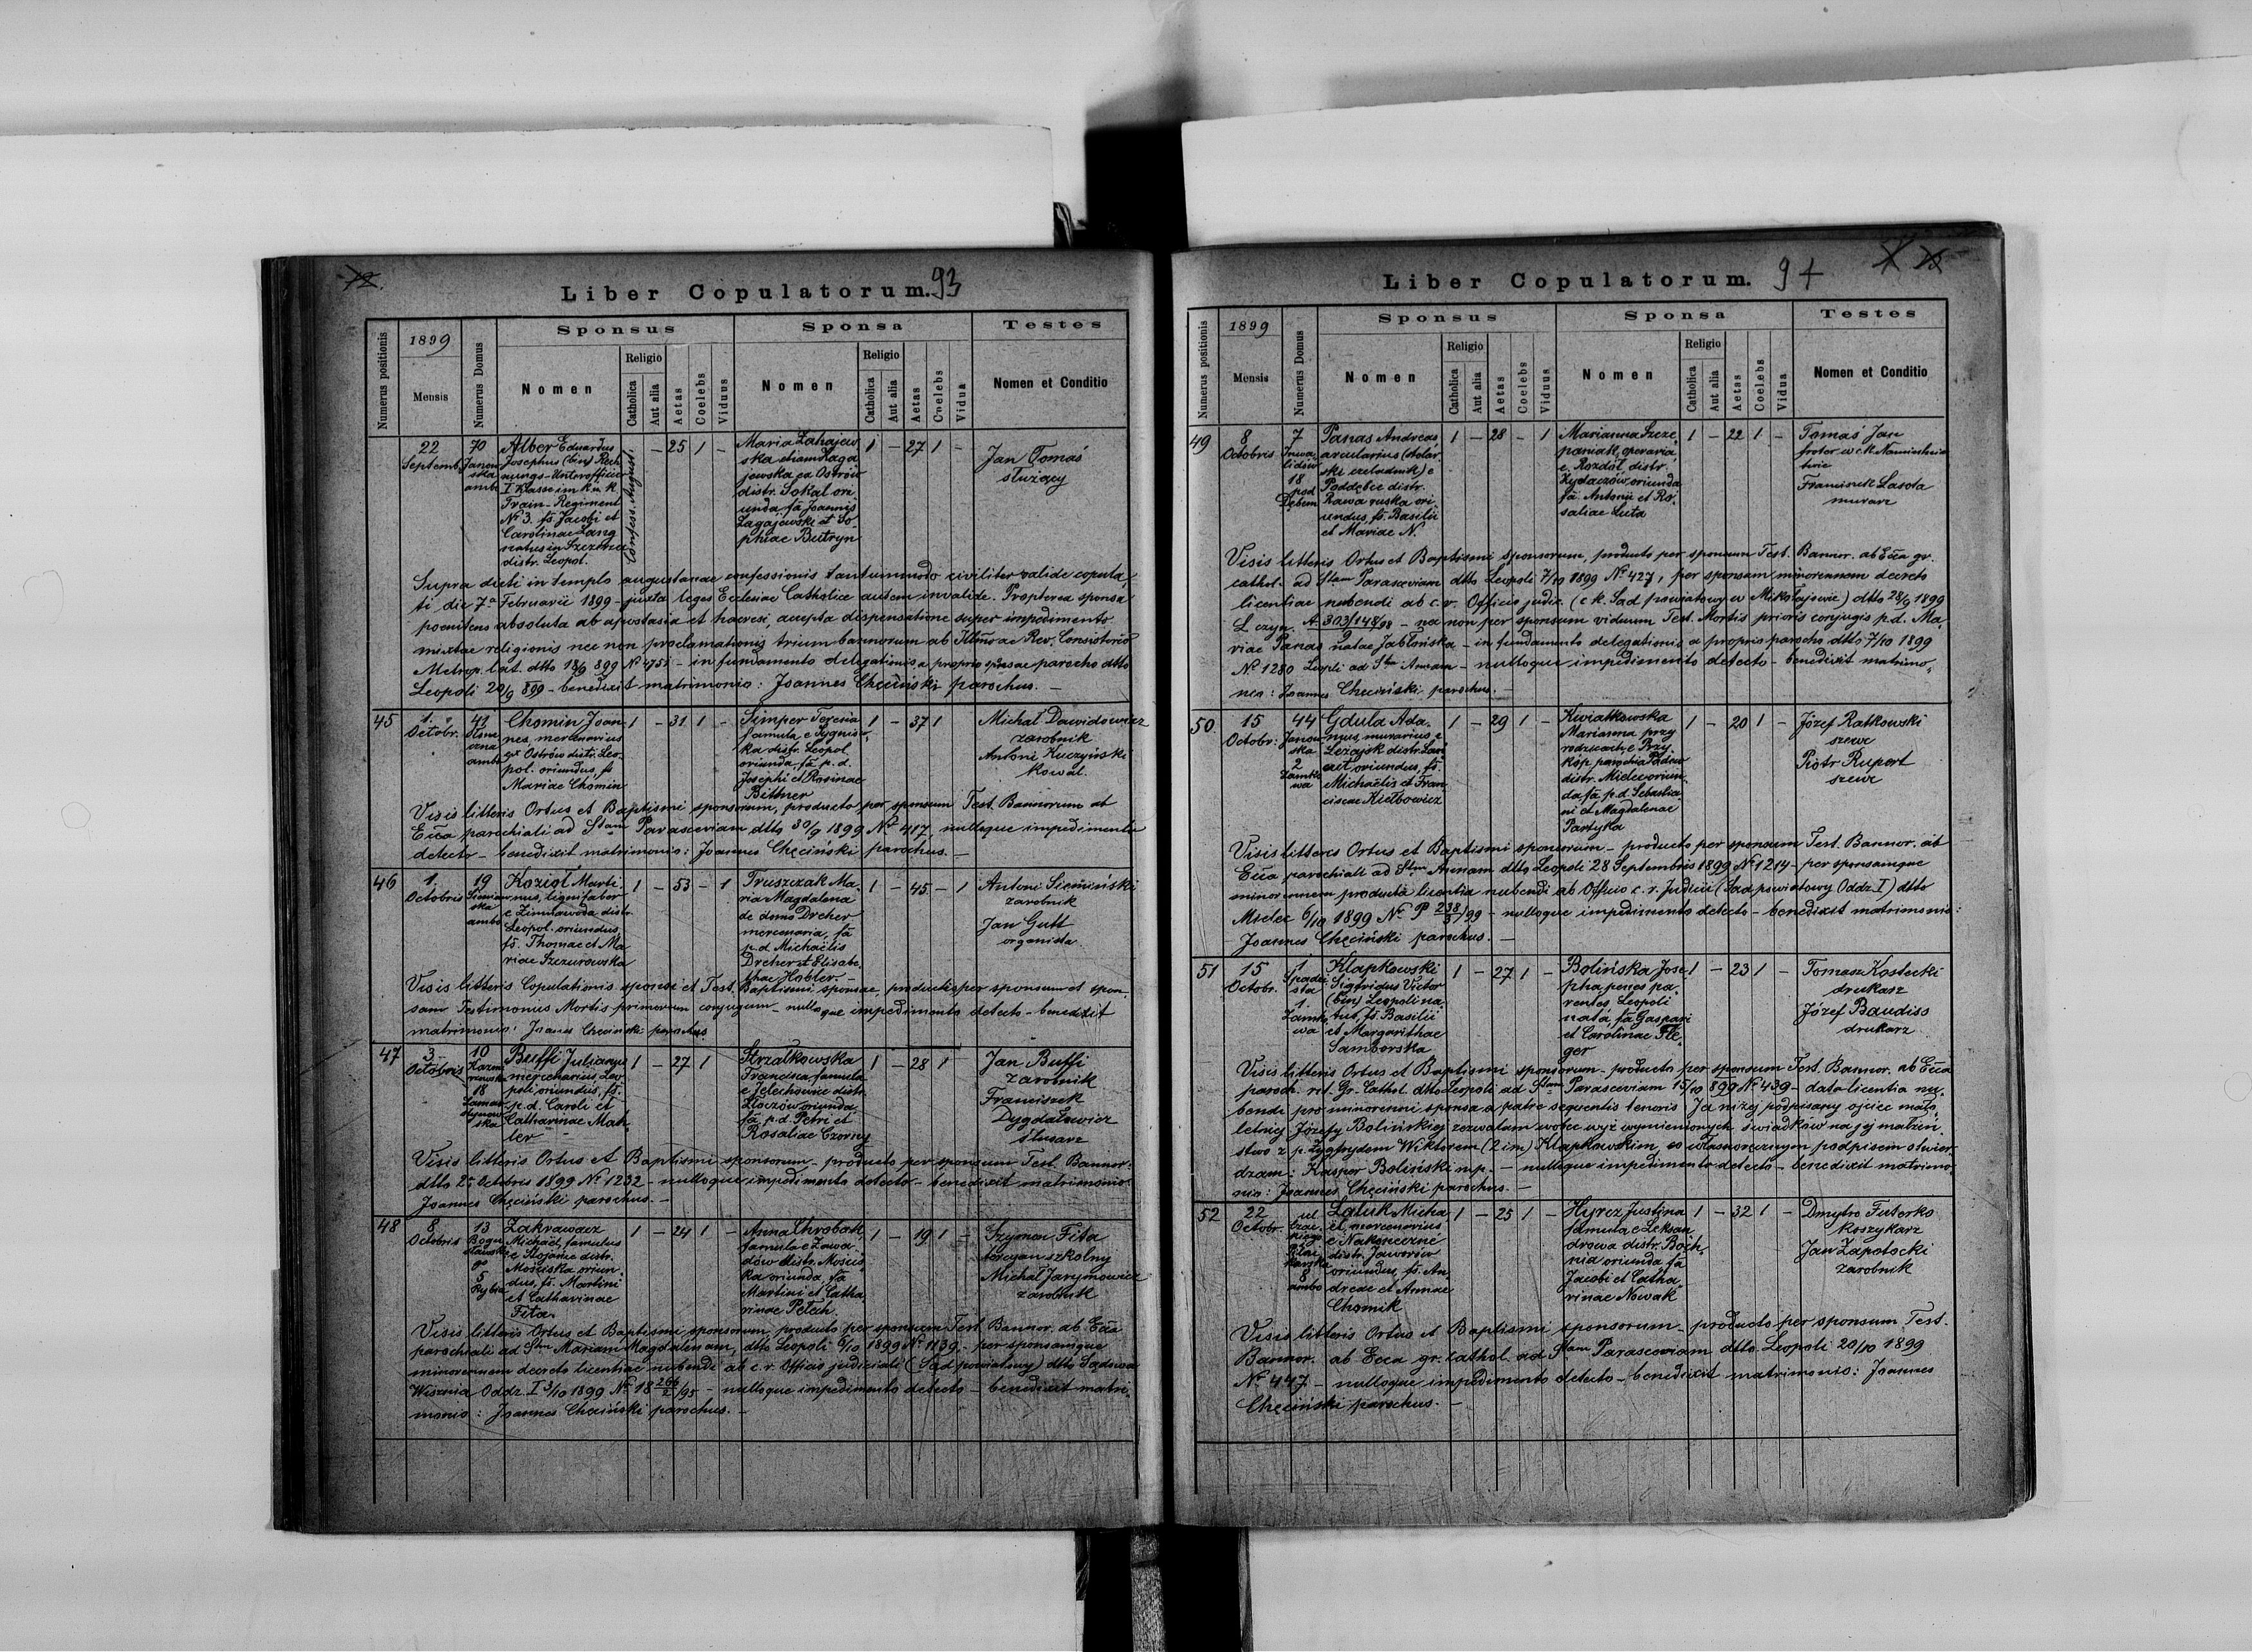 72.
Liber Copulatorum. 93
Numerus positionis
1899
Mensis
Numerus Domus
Sponsus
Nomen
Religio
Catholica
Aut alia
Aetas
Coelebs
Viduus
Sponsa
Nomen
Religio
Catholica
Aut alia
Aetas
Coelebs
Vidua
Testes
Nomen et Conditio
22 Septemb.
70 Janowska ambo
Alber Eduardus
Josephus (bin) Rech
nungs-Unterofficier
I Klasse im k. u. k.
Train-Regiment
No 3. fs. Jacobi et
Carolinae Lang
natus in Szczerzec
distr. Leopol.
Confess. August.
— 25 1 —
Maria Zahajew
ska etiam Zaga
jewska ex Ostrów
distr. Sokal ori
unda, fa Joannis
Zagajewski et So
phiae Butryn
1 — 27 1 —
Jan Tomaś
służący
Supra dicti in templo augustanae confessionis tantummodo civiliter valide copula
ti die 7a Februarii 1899 - juxta leges Ecclesiae Catholice autem invalide. Propterea sponsa
poenitens absoluta ab apostasia et haeresi, accepta dispensatione super impedimento
mixtae religionis nec non proclamationis trium bannorum ab Illmo ac Rev. Consistorio
Metrop. lat. dtto 18/9 899 No 4751 - in fundamento delegationis a proprio sponsae parocho dtto
Leopoli 20/9 899 - benedixit matrimonio: Joannes Chęciński parochus. —
45
1. Octobr.
41 ambo
Chomin Joan
nes, mercenarius
ex Ostrów distr. Leo
pol. oriundus, fs
Mariae Chomin
1 — 31 1 —
Simper Teresia
famula e Sygniów
ka distr. Leopol
oriunda, fa p. d.
Josephi et Rosinae
Bittner
1 — 37 1
Michał Dawidowicz
zarobnik
Antoni Kuczyński
kowal.
Visis litteris Ortus et Baptismi sponsorum, producto per sponsum Test. Bannorum ab
Ecca parochiali ad Stam Parasceviam dtto 30/9 1899 No 417, nulloque impedimento
detecto - benedixit matrimonio: Joannes Chęciński parochus. —
46
1. Octobris
19 Sieniawska ambo
Kozioł Marti
nus, lignifaber
e Zimnawoda distr.
Leopol. oriundus,
fs. Thomae et Ma
riae Szczurowska
1 — 53 — 1
Truszczak Ma
ria Magdalena
de domo Dreher
mercenaria, fa
p. d. Michaëlis
Dreher et Elisabe
thae Hobler. —
1 — 45 — 1
Antoni Siemiński
zarobnik
Jan Gutt
organista
Visis litteris Copulationis sponsi et Test. Baptismi sponsae, productis per sponsum et spon
sam Testimoniis Mortis priorum conjugum - nulloque impedimento detecto - benedixit
matrimonio: Joannes Chęciński parochus.
47
3 Octobris
10 18
Buffi Julianus
mercenarius Leo
poli oriundus, fs.
p. d. Caroli et
Catharinae Mah
ler —
1 — 27 1
Strzałkowska
Francisca, famula
e Jelechowice distr.
Złoczów oriunda,
fa p. d. Petri et
Rosaliae Czorny
1 — 28 1
Jan Buffi
zarobnik
Franciszek
Dygdałewicz
ślusarz
Visis litteris Ortus et Baptismi sponsorum - producto per sponsum Test. Bannor.
dtto 25 Octobris 1899 No 1232 - nulloque impedimento detecto - benedixit matrimonio
Joannes Chęciński parochus. —
48
8 Octobris
13 Bogusławskiego 5 Rybia
Zakrawacz
Michaël, famulus
e Stojańce distr.
Mościska oriun
dus, fs. Martini
et Catharinae
Fita
1 — 24 1 —
Anna Chrobak,
famula e Zawa
dów distr. Mościs
ka oriunda, fa
Martini et Catha
rinae Petech.
1 — 19 1 —
Szymon Fita
tercyan szkolny
Michał Jarymowicz
zarobnik
Visis litteris Ortus et Baptismi sponsorum, producto per sponsum Test. Bannor. ab Ecca
parochiali ad Stam Mariam Magdalenam, dtto Leopoli 6/10 1899 No 1139, - per sponsamque
minorennem decreto licentiae nubendi ab c. r. Officio judiciali (Sąd powiatowy) dtto Sądowa
Wisznia Oddz. I 3/10 1899 No 18 266/2 /95 - nulloque impedimento detecto - benedixit matri
monio: Joannes Chęciński parochus. —
Liber Copulatorum. 94
Numerus positionis
1899
Mensis
Numerus Domus
Sponsus
Nomen
Religio
Catholica
Aut alia
Aetas
Coelebs
Viduus
Sponsa
Nomen
Religio
Catholica
Aut alia
Aetas
Coelebs
Vidua
Testes
Nomen et Conditio
49
8 Octobris
7 Inwalidów 18 pod Dębem
Panas Andreas
arcularius (stolar
ski czeladnik) e
Poddębce distr.
Rawa ruska ori
undus, fs. Basilii
et Mariae N.
1 — 28 — 1
Marianna Szcze
paniak, operaria
e Rozdół distr.
Żydaczów oriunda
fa Antonii et Ro
saliae Luta
1 — 22 1 —
Tomaś Jan
froter w c. k. Namiestnic
twie
Franciszek Lasota
murarz
Visis litteris Ortus et Baptismi sponsorum, producto per sponsum Test. Bannor. ab Ecca gr.
cathol. ad Stam Parasceviam dtto Leopoli 7/10 1899 No 427, per sponsam minorennem decreto
licentiae nubendi ab c. r. Officio judic. (c. k. Sąd powiatowy w Mikołajowie) dtto 28/9 1899
L czyn. A. 303/148/98 9 - nec non per sponsum viduum Test. Mortis prioris conjugis p. d. Ma
riae Panas natae Jabłońska - in fundamento delegationis a proprio parocho dtto 7/10 1899
No 1280 Leopoli ad Stam Annam - nulloque impedimento detecto - benedixit matrimo
nio: Joannes Chęciński parochus. —
50.
15 Octobr:
44 Janowska 2 Zamkowa
Gdula Ada
mus, murarius e
Leżajsk distr. Łań
cut oriundus, fs.
Michaëlis et Fran
ciscae Kiełbowicz
1 — 29 1 —
Kwiatkowska
Marianna przy
rodzicach e Przy
kóp parochia Padew
distr. Mielec oriun
da, fa p. d. Sebastia
ni et Magdalenae
Partyka
1 — 20 1 —
Józef Ratkowski
szewc
Piotr Rupert
szewc
Visis litteris Ortus et Baptismi sponsorum - producto per sponsum Test. Bannor. ab
Ecca parochiali ad Stam Annam dtto Leopoli 28 Septembris 1899 No 1214 - per sponsamque
minorennem producta licentia nubendi ab Officio c. r. Judicii (Sąd powiatowy Oddz. I) dtto
Mielec 6/10 1899 No P 238/3 /99 - nulloque impedimento detecto - benedixit matrimonio:
Joannes Chęciński parochus. —
51
15 Octobr.
1 1. Zamkowa
Klapkowski
Sigfridus Victor
(bin) Leopoli na
tus, fs. Basilii
et Margarithae
Samborska
1 — 27 1 —
Bolińska Jose
pha penes pa
rentes Leopoli
nata, fa Gaspari
et Carolinae Fle
ger
1 — 23 1 —
Tomasz Kostecki
drukarz
Józef Baudiss
drukarz
Visis litteris Ortus et Baptismi sponsorum - producto per sponsum Test. Bannor. ab Ecca
paroch. rit. Gr. Cathol. dtto Leopoli ad Stam Parasceviam 15/10 899 No 439 - data licentia nu
bendi pro minorenni sponsa a patre sequentis tenoris: Ja niżej podpisany ojciec mało
letniej Józefy Bolińskiej zezwalam wobec wyż wymienionych świadków na jej małżeń
stwo z p. Zygfrydem Wiktorem (2 im) Klapkowskim, co własnoręcznym podpisem stwier
dzam: Kasper Boliński mp. — nulloque impedimento detecto - benedixit matrimo
nio: Joannes Chęciński parochus. —
52
22 Octobr.
8 ambo
Łaluk Micha
el, mercenarius
e Nakoneczne
distr. Jaworów
oriundus, fs. An
dreae et Annae
Chomik
1 — 25 1 —
Hyrcz Justina
famula e Leksan
drowa distr. Boch
nia oriunda fa
Jacobi et Catha
rinae Nowak
1 — 32 1 —
Dmytro Futerko
koszykarz
Jan Zapotocki
zarobnik
Visis litteris Ortus et Baptismi sponsorum - producto per sponsum Test.
Bannor. ab Ecca gr. cathol. ad Stam Parasceviam dtto Leopoli 20/10 1899
No 447 - nulloque impedimento detecto - benedixit matrimonio: Joannes
Chęciński parochus. —